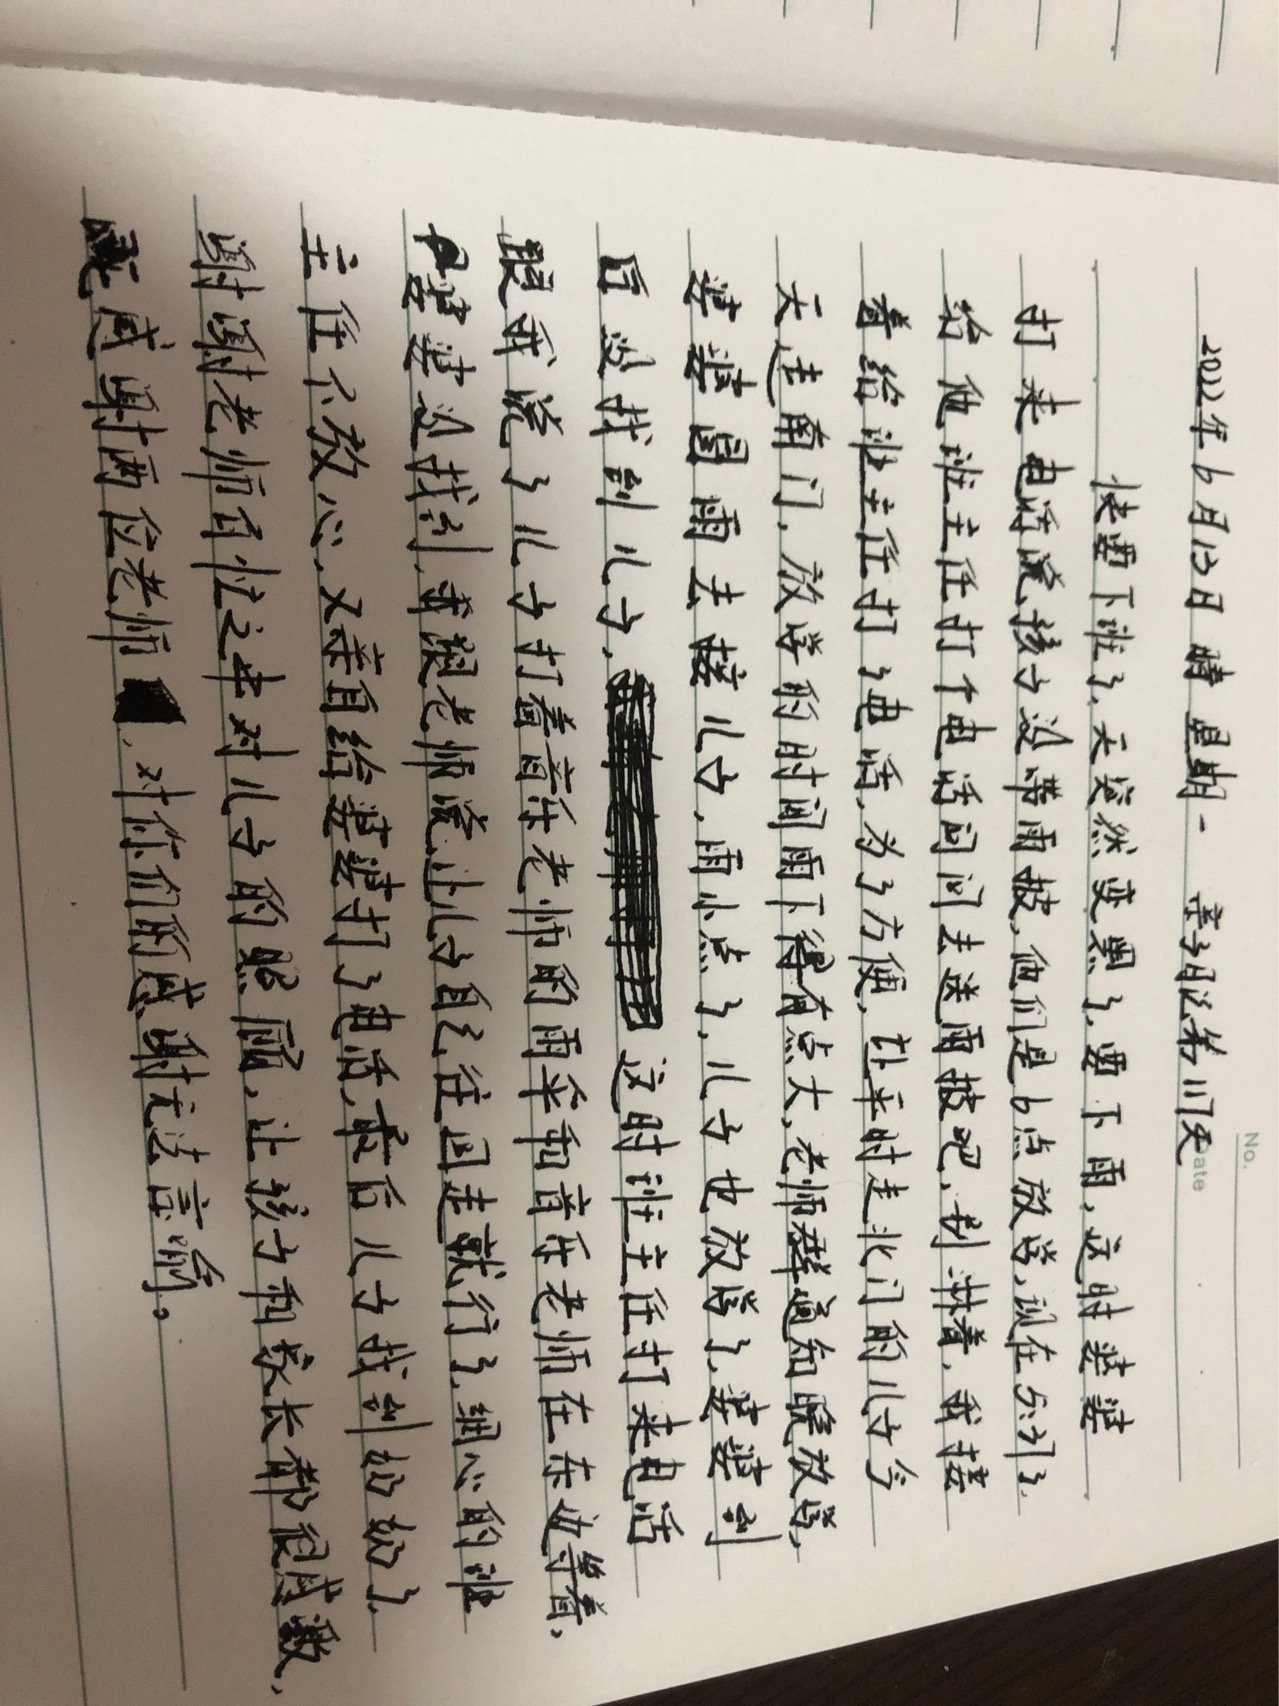 No.
Date
2022年6月13日 晴 星期一 亲子日记第11天
快要下班了,天突然变黑了,要下雨,这时婆婆
打来电话说孩子没带雨披,他们是6点放学,现在5:31了,
给他班主任打个电话问问去送雨披吧,别淋着,我接
着给班主任打了电话,为了方便,让平时走北门的儿子今
天走南门,放学的时间雨下得有点大,老师群通知晚放学,
婆婆冒雨去接儿子,雨小点了,儿子也放学了,婆婆到
后没找到儿子, 这时班主任打来电话
跟我说了儿子打着音乐老师的雨伞和音乐老师在东边等着,
婆婆没找到,我跟老师说让儿子自己往回走就行了,细心的班
主任不放心,又亲自给婆婆打了电话,最后儿子找到奶奶了,
谢谢老师百忙之中对儿子的照顾,让孩子和家长都很感激,
感谢两位老师,对你们的感谢无法言喻。